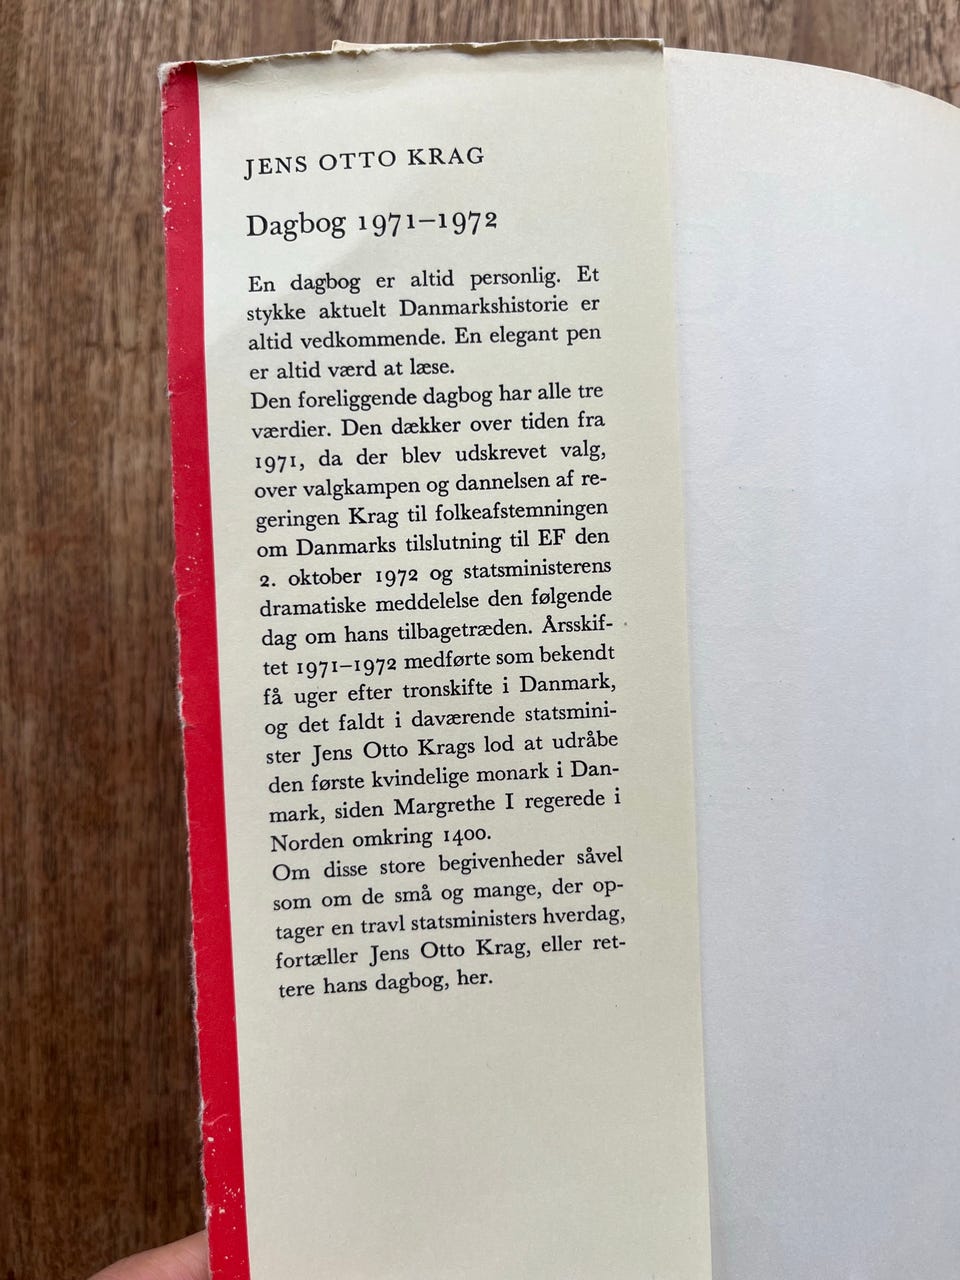 JENS OTTO KRAG
Dagbog 1971–1972
En dagbog er altid personlig. Et
stykke aktuelt Danmarkshistorie er
altid vedkommende. En elegant pen
er altid værd at læse.
Den foreliggende dagbog har alle tre
værdier. Den dækker over tiden fra
1971, da der blev udskrevet valg,
over valgkampen og dannelsen af re-
geringen Krag til folkeafstemningen
om Danmarks tilslutning til EF den
2. oktober 1972 og statsministerens
dramatiske meddelelse den følgende
dag om hans tilbagetræden. Årsskif-
tet 1971–1972 medførte som bekendt
få uger efter tronskifte i Danmark,
og det faldt i daværende statsmini-
ster Jens Otto Krags lod at udråbe
den første kvindelige monark i Dan-
mark, siden Margrethe I regerede i
Norden omkring 1400.
Om disse store begivenheder såvel
som om de små og mange, der op-
tager en travl statsministers hverdag,
fortæller Jens Otto Krag, eller ret-
tere hans dagbog, her.